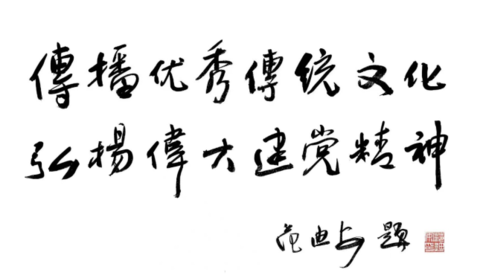 傳播优秀傳统文化
弘楊偉大建党精神
范迪与 题